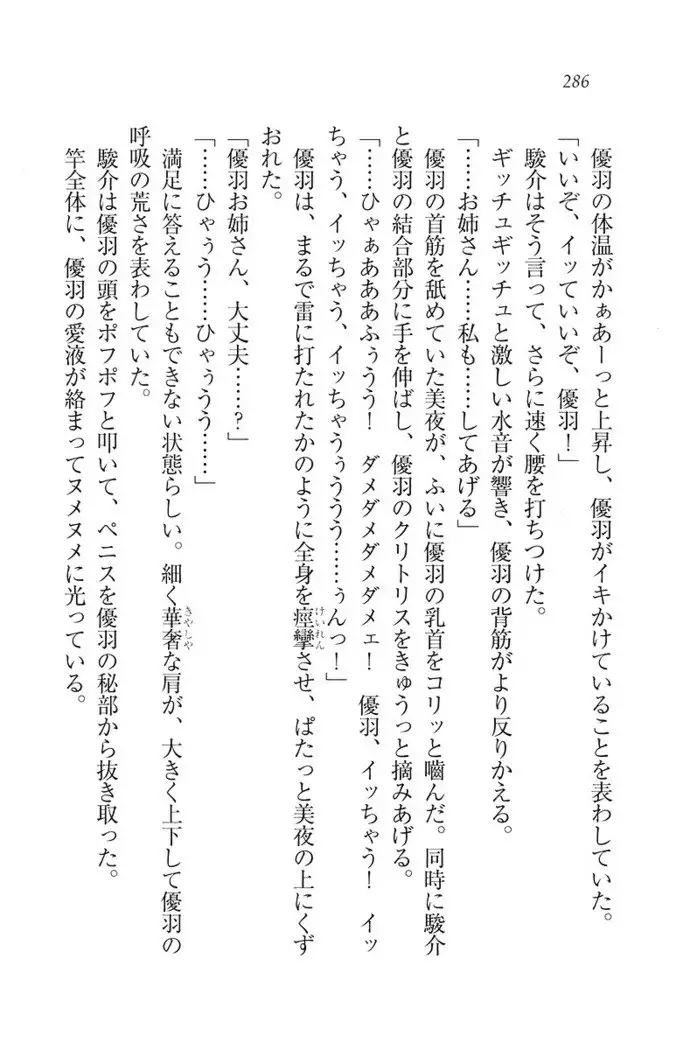 286
優羽の体温がかぁあーっと上昇し、優羽がイキかけていることを表わしていた。
「いいぞ、イッていいぞ、優羽！」
駿介はそう言って、さらに速く腰を打ちつけた。
ギッチュギッチュと激しい水音が響き、優羽の背筋がより反りかえる。
「……お姉さん……私も……してあげる」
優羽の首筋を舐めていた美夜が、ふいに優羽の乳首をコリッと嚙んだ。同時に駿介
と優羽の結合部分に手を伸ばし、優羽のクリトリスをきゅうっと摘みあげる。
「……ひゃぁあああふぅうう！　ダメダメダメダメェ！　優羽、イッちゃう！　イッ
ちゃう、イッちゃう、イッちゃうぅううう……ぅんっ！」
優羽は、まるで雷に打たれたかのように全身を痙攣させ、ぱたっと美夜の上にくず
おれた。
「優羽お姉さん、大丈夫……？」
「……ひゃぅう……ひゃぅうう……」
満足に答えることもできない状態らしい。細く華奢な肩が、大きく上下して優羽の
呼吸の荒さを表わしていた。
駿介は優羽の頭をポフポフと叩いて、ペニスを優羽の秘部から抜き取った。
竿全体に、優羽の愛液が絡まってヌメヌメに光っている。